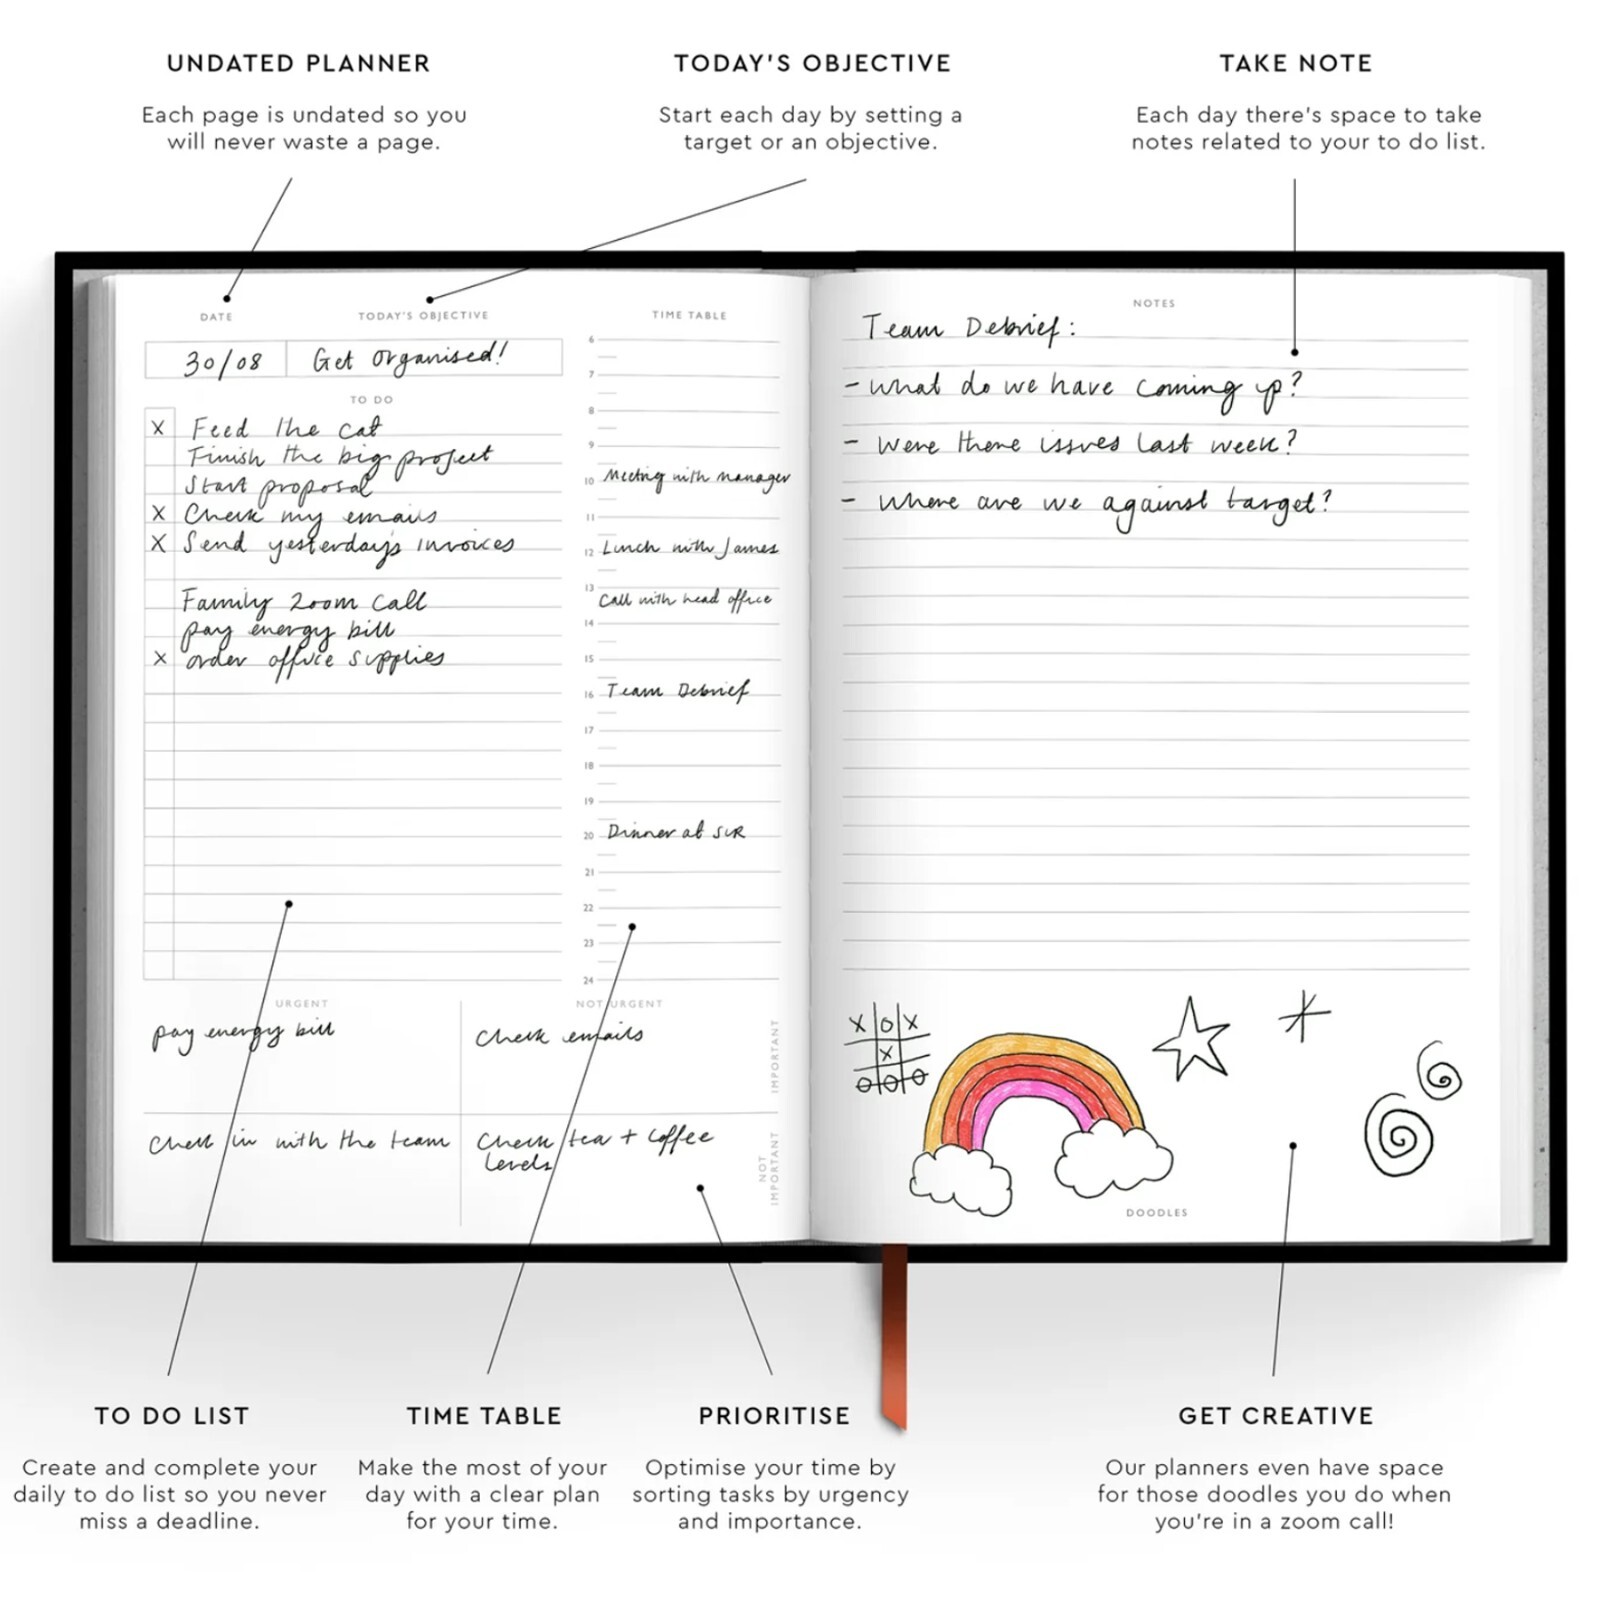 UNDATED PLANNER
Each page is undated so you
will never waste a page.
TODAY'S OBJECTIVE
Start each day by setting a
target or an objective.
TAKE NOTE
Each day there's space to take
notes related to your to do list.
DATE
TODAY'S OBJECTIVE
30/08
Get Organised!
TO DO
X Feed the cat
Finish the big project
Start proposal
X Check my emails
X Send yesterday's invoices
Family Zoom Call
pay energy bill
X order office supplies
TIME TABLE
6
7
8
9
10 Meeting with manager
11
12 Lunch with James
13
Call with head office
14
15
16 Team Debrief
17
18
19
20 Dinner at
21
22
23
24
URGENT
NOT URGENT
pay energy bill
Check emails
IMPORTANT
Check in with the team
Check tea + coffee
levels
NOT
IMPORTANT
NOTES
Team Debrief:
- What do we have coming up?
- Were there issues last week?
- Where are we against target?
X O X
X
O O O
DOODLES
TO DO LIST
Create and complete your
daily to do list so you never
miss a deadline.
TIME TABLE
Make the most of your
day with a clear plan
for your time.
PRIORITISE
Optimise your time by
sorting tasks by urgency
and importance.
GET CREATIVE
Our planners even have space
for those doodles you do when
you're in a zoom call!